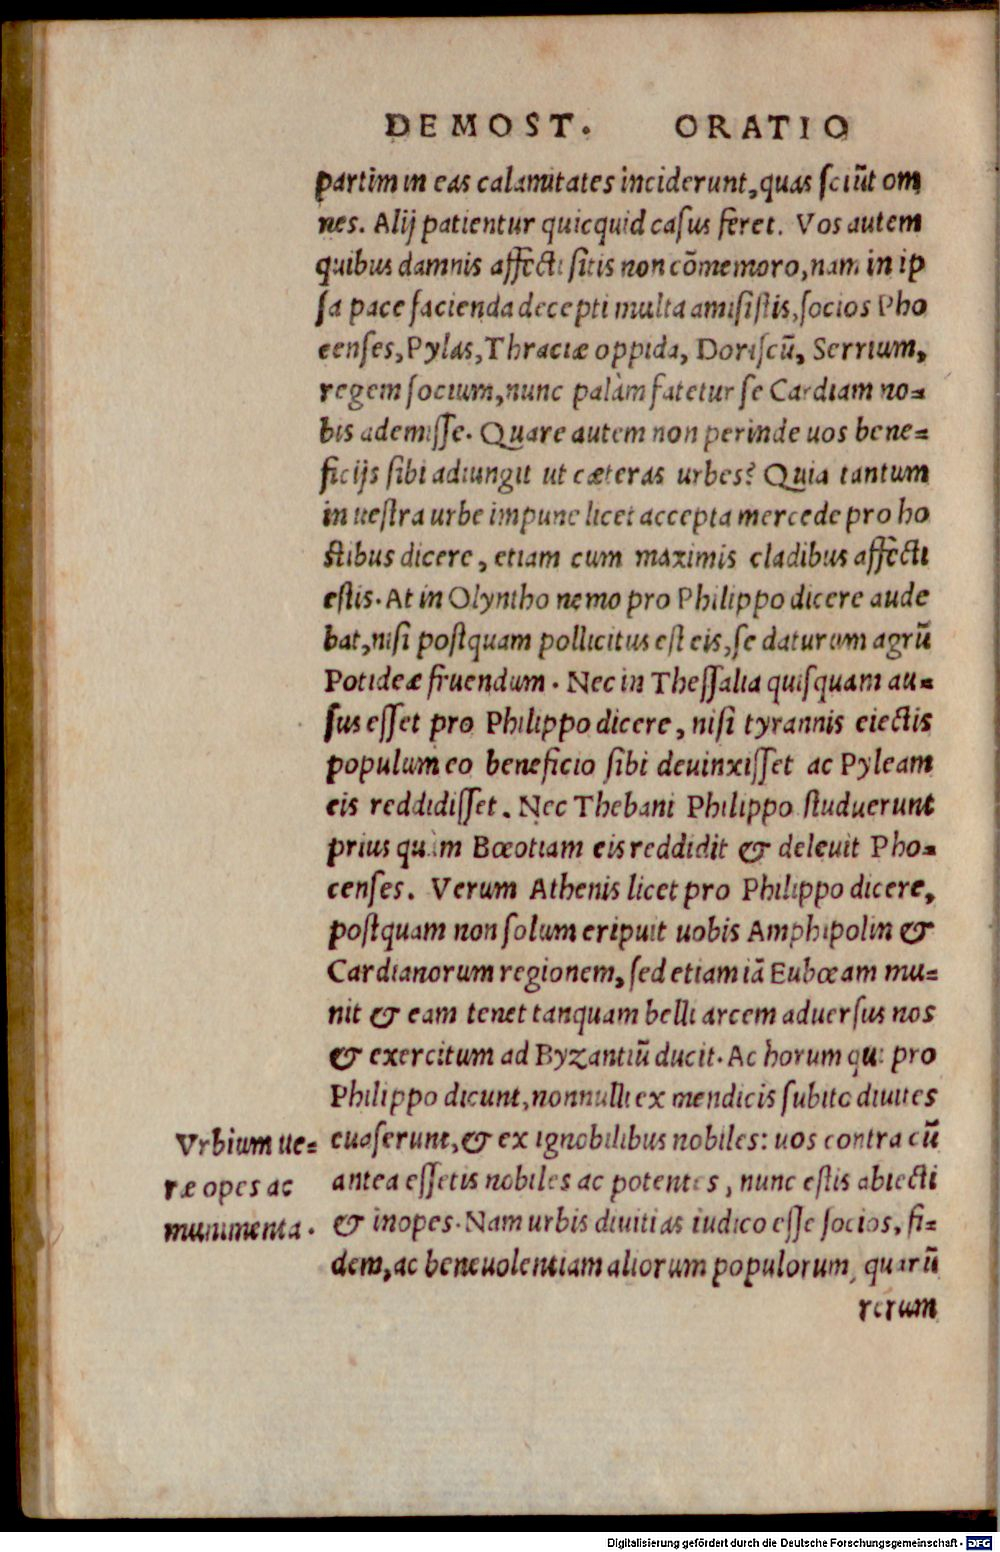 DEMOST. ORATIO
partim in eas calamitates inciderunt, quas sciũt om
nes. Alij patientur quicquid casus feret. Vos autem
quibus damnis affecti sitis non cõmemoro, nam in ip
sa pace facienda decepti multa amisistis, socios Pho
censes, Pylas, Thraciæ oppida, Doriscũ, Serrium,
regem socium, nunc palàm fatetur se Cardiam no=
bis ademisse. Quare autem non perinde uos bene=
ficijs sibi adiungit ut cæteras urbes? Quia tantum
in uestra urbe impune licet accepta mercede pro ho
stibus dicere, etiam cum maximis cladibus affecti
estis. At in Olyntho nemo pro Philippo dicere aude
bat, nisi postquam pollicitus est eis, se daturum agrũ
Potideæ fruendum. Nec in Thessalia quisquam au=
sus esset pro Philippo dicere, nisi tyrannis eiectis
populum eo beneficio sibi deuinxisset ac Pyleam
eis reddidisset. Nec Thebani Philippo studuerunt
prius quàm Bœotiam eis reddidit & deleuit Pho=
censes. Verum Athenis licet pro Philippo dicere,
postquam non solum eripuit uobis Amphipolin &
Cardianorum regionem, sed etiam iã Eubœam mu=
nit & eam tenet tanquam belli arcem aduersus nos
& exercitum ad Byzantiũ ducit. Ac horum qui pro
Philippo dicunt, nonnulli ex mendicis subito diuites
euaserunt, & ex ignobilibus nobiles: uos contra cũ
antea essetis nobiles ac potentes, nunc estis abiecti
& inopes. Nam urbis diuitias iudico esse socios, fi=
dem, ac beneuolentiam aliorum populorum, quarũ
rerum
Vrbium ue=
ræ opes ac
munimenta.
Digitalisierung gefördert durch die Deutsche Forschungsgemeinschaft - DFG